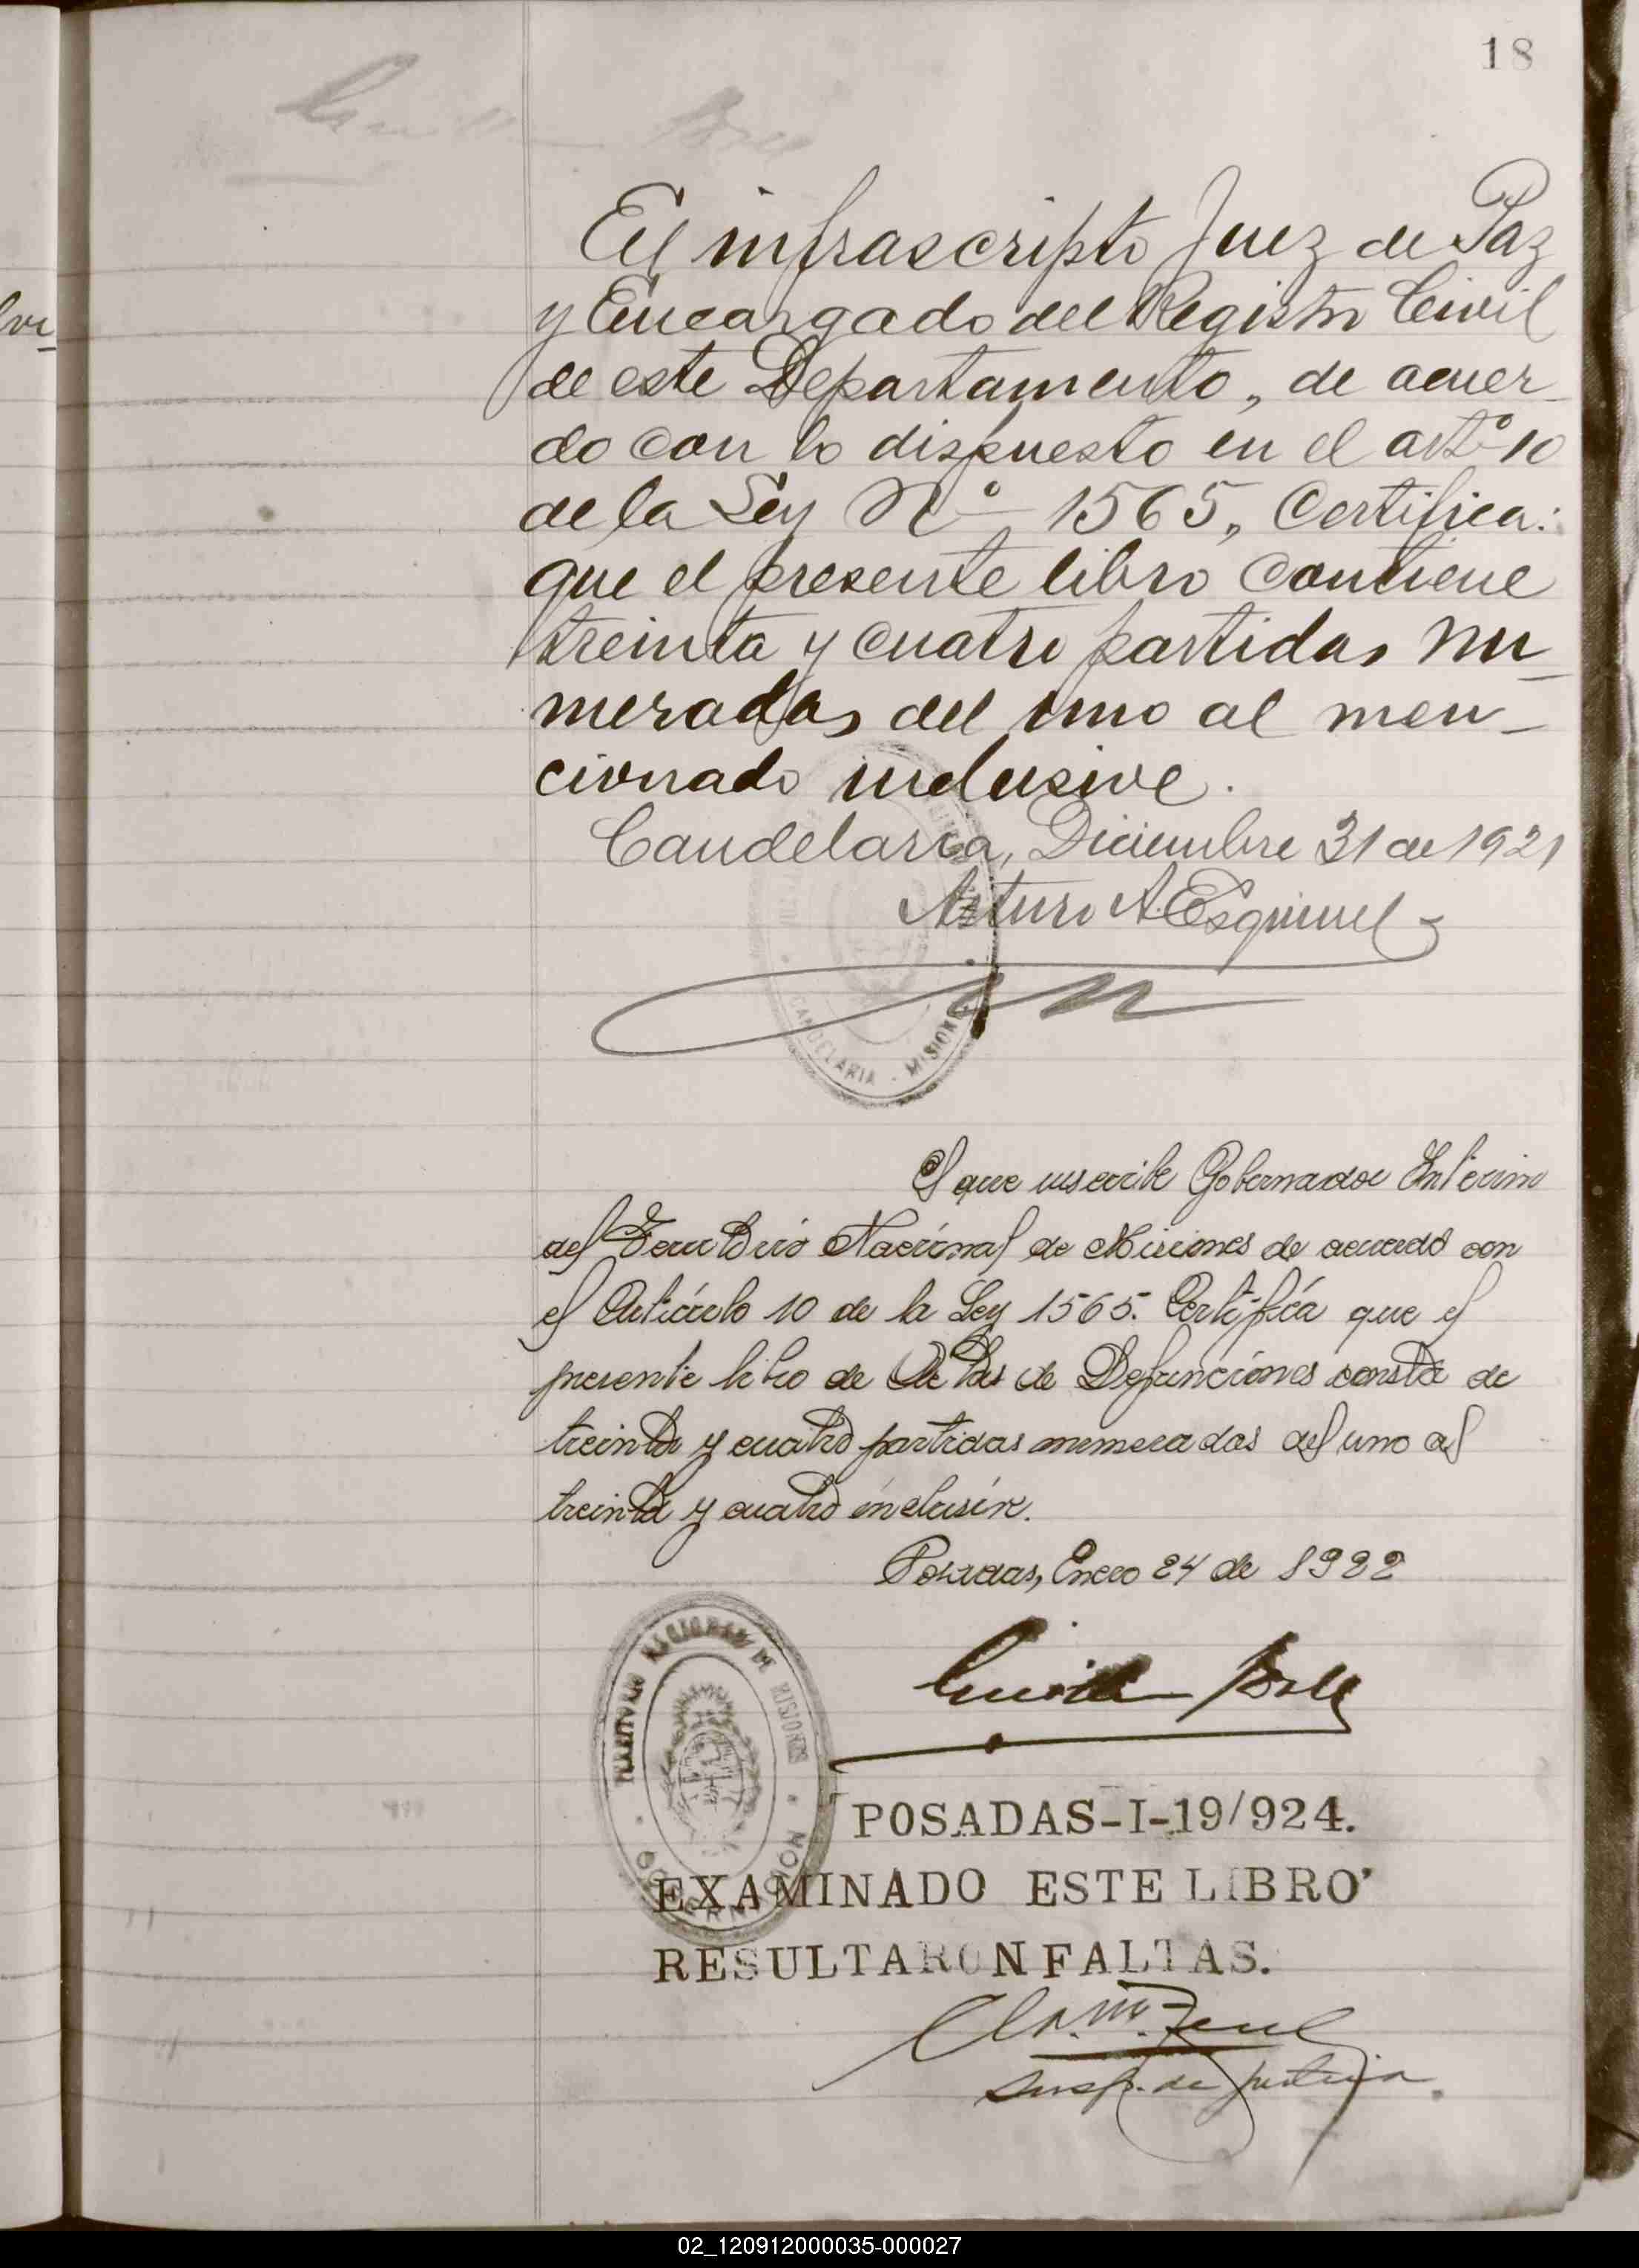 18
El infrascripto Juez de Paz
y Encargado del Registro Civil
de este Departamento, de acuer-
do con lo dispuesto en el artº 10
de la Ley Nº 1565, Certifica:
que el presente libro contiene
treinta y cuatro partidas nu-
meradas del uno al men-
cionado inclusive.
Candelaria, Diciembre 31 de 1921
Arturo A. Esquivel
CANDELARIA - MISIONES
El que suscribe Gobernador Interino
del Territorio Nacional de Misiones de acuerdo con
el Artículo 10 de la Ley 1565. Certifíca que el
presente libro de Actas de Defunciones consta de
treinta y cuatro partidas numeradas del uno al
treinta y cuatro inclusive.
Posadas, Enero 24 de 1922
TERRITORIO NACIONAL DE MISIONES
GOBERNACION
POSADAS-I-19/924.
EXAMINADO ESTE LIBRO
RESULTARON FALTAS.
Insp. de justicia.
02_120912000035-000027